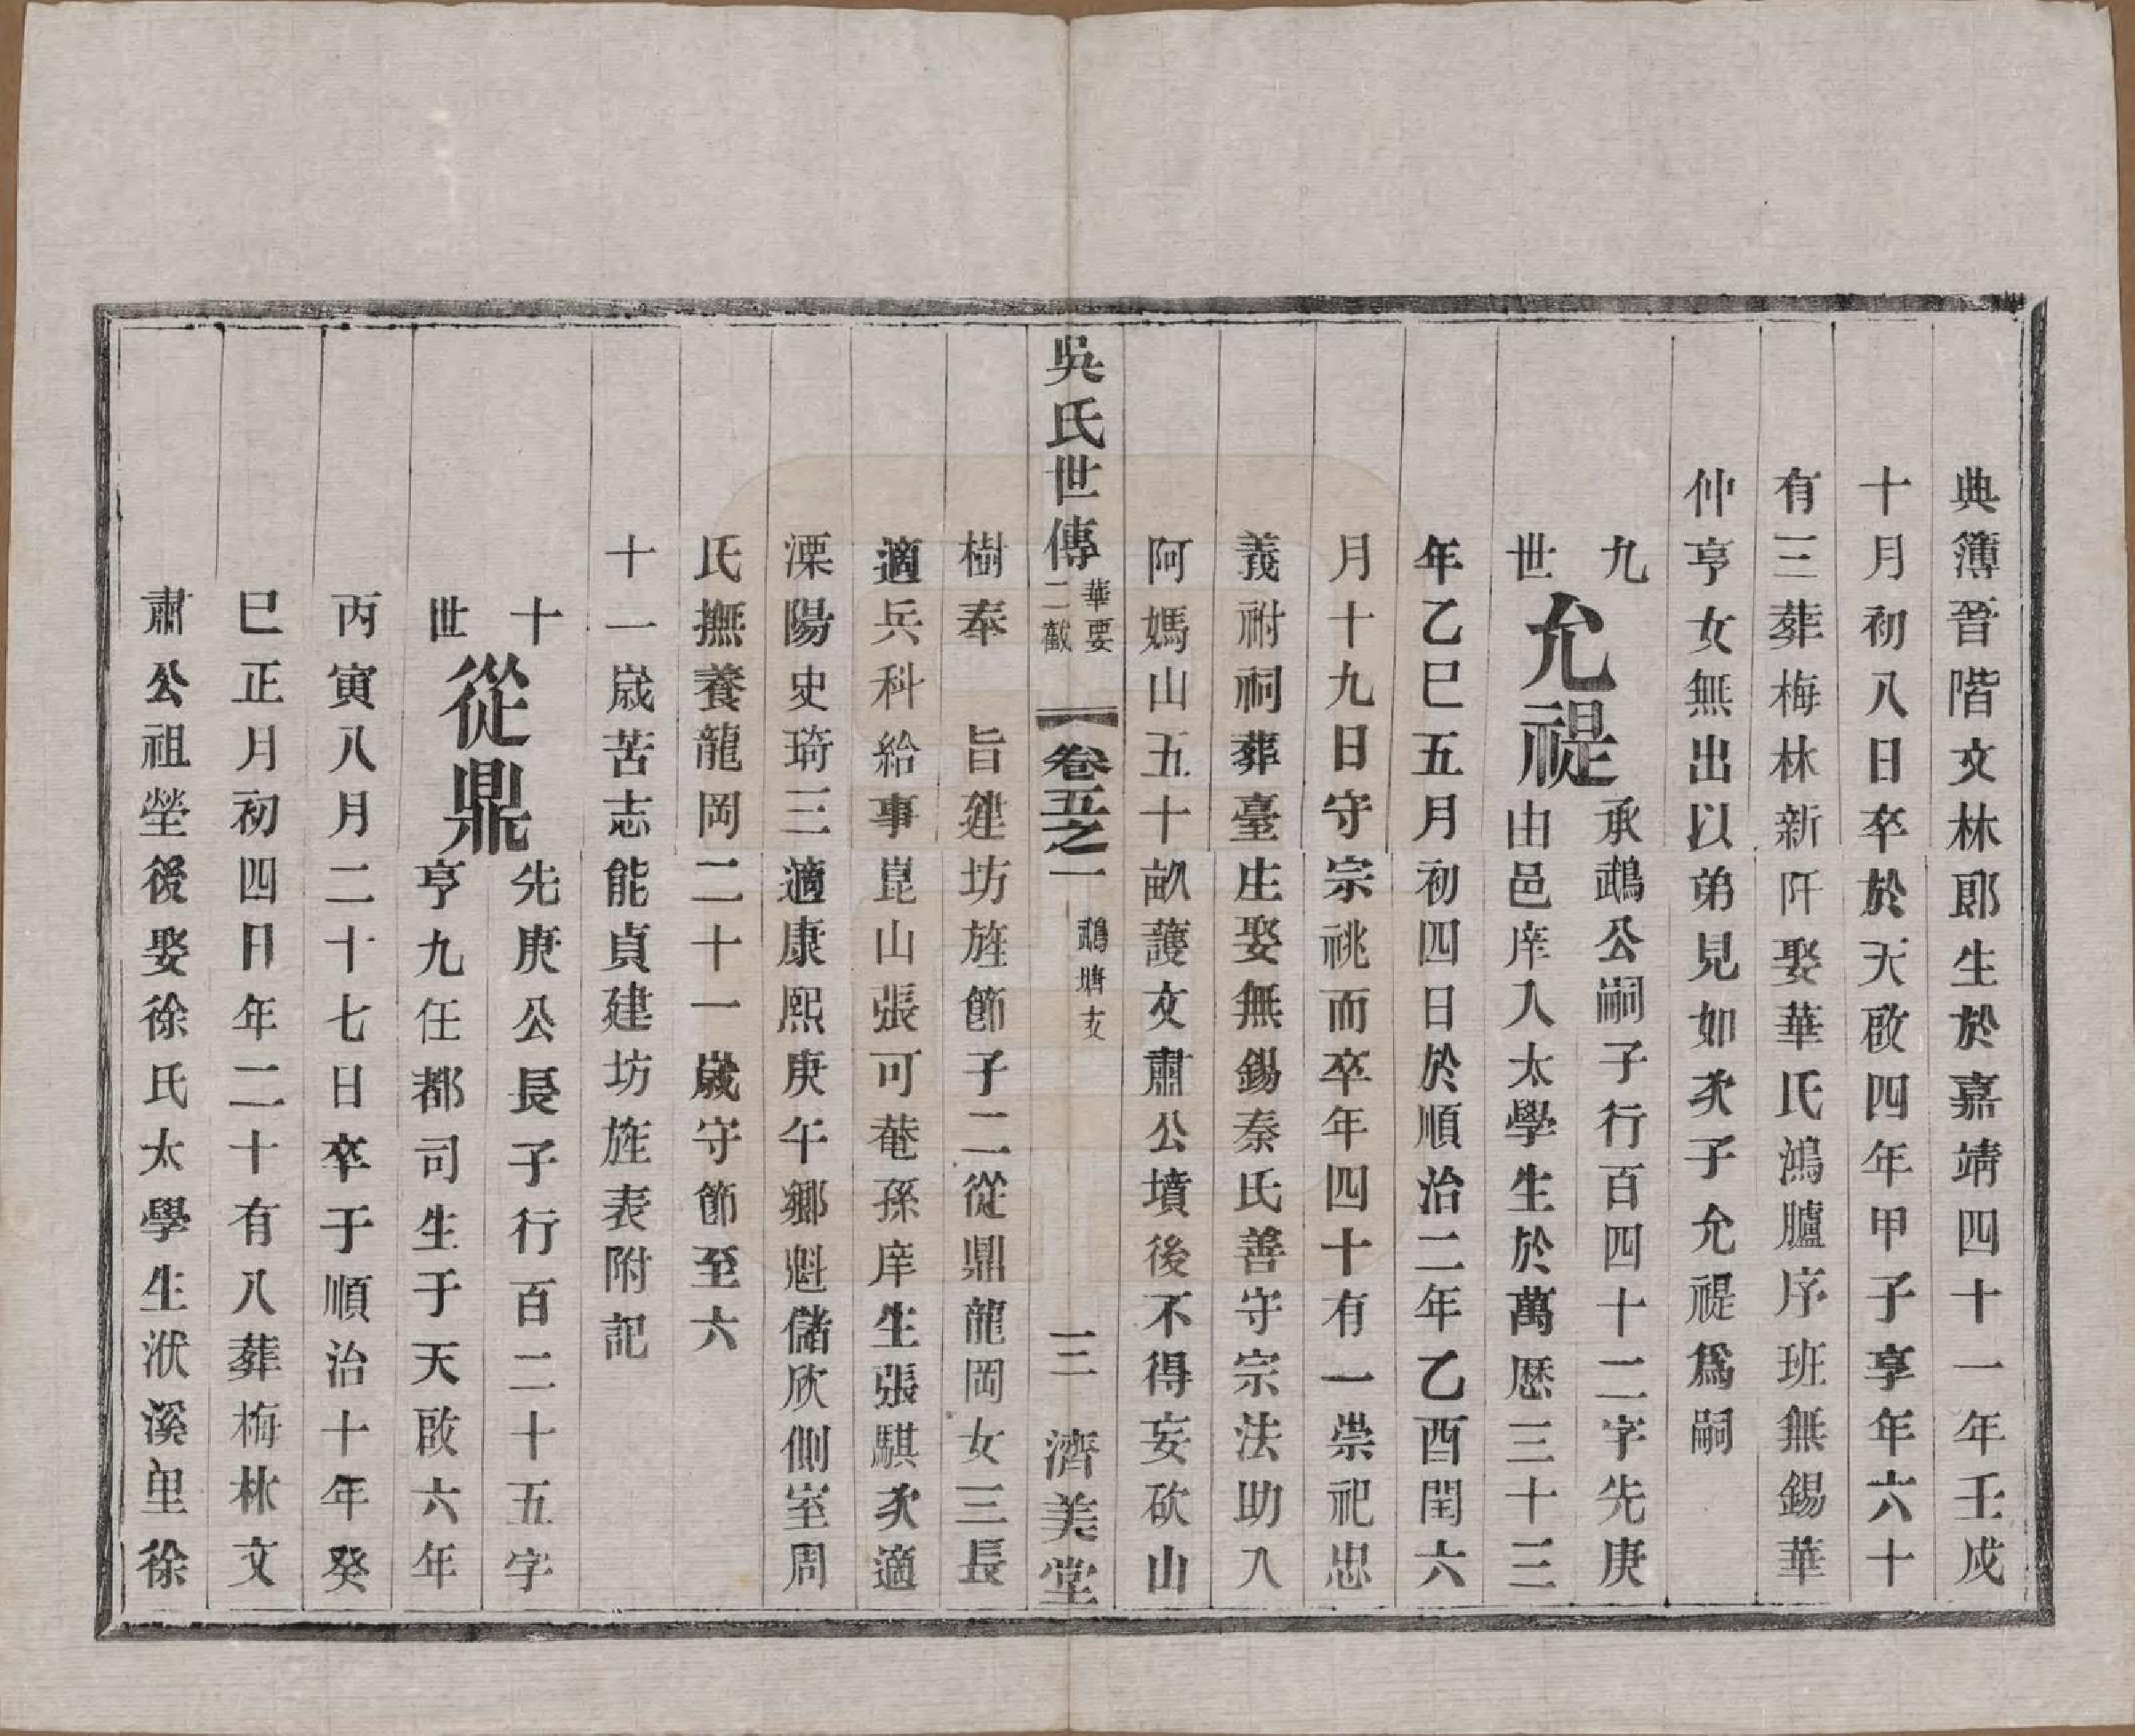 典簿晉階文林郎生於嘉靖四十一年壬戌
十月初八日卒於天啟四年甲子享年六十
有三葬梅林新阡娶華氏鴻臚序班無錫華
仲亨女無出以弟見如次子允禔爲嗣
九世
允禔
承鵡公嗣子行百四十二字先庚
由邑庠入太學生於萬歷三十三
年乙巳五月初四日於順治二年乙酉閏六
月十九日守宗祧而卒年四十有一崇祀忠
義祔祠葬臺庄娶無錫秦氏善守宗法助入
阿媽山五十畝護文肅公墳後不得妄砍山
吳氏世傳
華要
二戴
卷五之一
鵡塘支
三
濟美堂
樹奉　旨建坊旌節子二從鼎龍岡女三長
適兵科給事崑山張可菴孫庠生張騏次適
溧陽史琦三適康熙庚午鄉魁儲欣側室周
氏撫養龍岡二十一歲守節至六
十一歲苦志能貞建坊旌表附記
十世
從鼎
先庚公長子行百二十五字
亨九任都司生于天啟六年
丙寅八月二十七日卒于順治十年癸
巳正月初四日年二十有八葬梅林文
肅公祖塋後娶徐氏太學生洑溪里徐